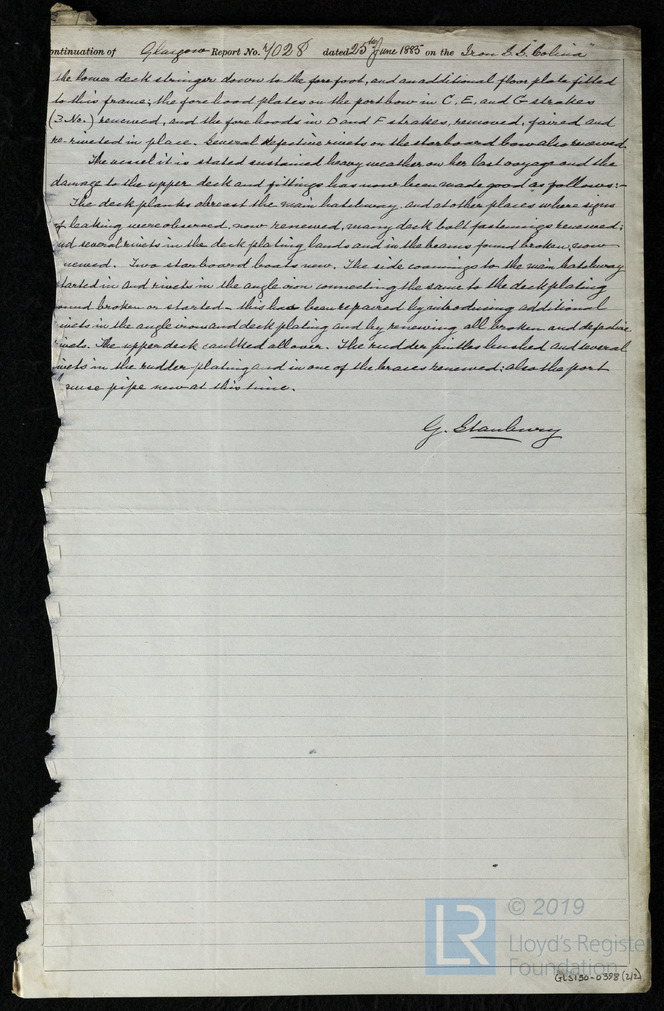 ontinuation of Glasgow Report No. 7028 dated 25th June 1885 on the Iron S.S. "Colina"
the lower deck stringer down to the forefoot, and an additional floor plate fitted
to this frame; the forehood plates on the port bow in C. E. and G strakes
(3 No.) renewed, and the forehoods in D and F strakes, removed, faired and
re-riveted in place. Several defective rivets on the starboard bow also renewed.
The vessel it is stated sustained heavy weather on her last voyage and the
damage to the upper deck and fittings has now been made good as follows:-
The deck planks abreast the main hatchway and at other places where signs
of leaking were observed, now renewed, many deck bolt fastenings renewed;
nd several rivets in the deck plating lands and in the beams found broken, now
newed. Two starboard boats new. The side coamings to the main hatchway
started in and rivets in the angle iron connecting the same to the deck plating
ound broken or started - this has been repaired by introducing additional
rivets in the angle irons and deck plating and by renewing all broken and defective
rivets. The upper deck caulked all over. The rudder pintles bushed and several
rivets in the rudder plating and in one of the braces renewed; also the port
wse pipe new at this time.
G. Stanbury
© 2019
LR
Lloyd's Register
Foundation
GLS130-0398 (2/2)